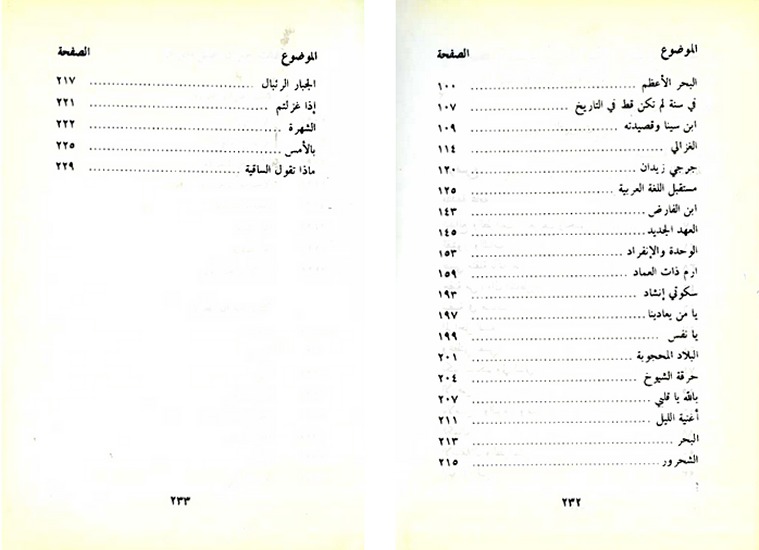 الموضوع الصفحة
البحر الأعظم ١٠٠
في سنة لم تكن قط في التاريخ ١٠٧
ابن سينا وقصيدته ١٠٩
الغزالي ١١٤
جرجي زيدان ١٢٠
مستقبل اللغة العربية ١٢٥
ابن الفارض ١٤٣
العهد الجديد ١٤٥
الوحدة والإنفراد ١٥٣
ارم ذات العماد ١٥٩
سكوتي إنشاد ١٩٣
يا من يعادينا ١٩٧
يا نفس ١٩٩
البلاد المحجوبة ٢٠١
حرقة الشيوخ ٢٠٤
بالله يا قلبي ٢٠٧
أغنية الليل ٢١١
البحر ٢١٣
الشحرور ٢١٥
٢٣٢
الموضوع الصفحة
الجبار الرئبال ٢١٧
إذا غزلتم ٢٢١
الشهرة ٢٢٢
بالأمس ٢٢٥
ماذا تقول الساقية ٢٢٩
٢٣٣